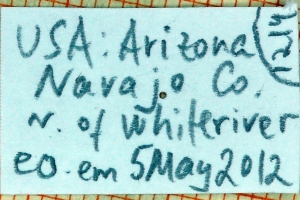 USA: Arizona
Navajo Co.
N. of Whiteriver
eo. em 5May2012